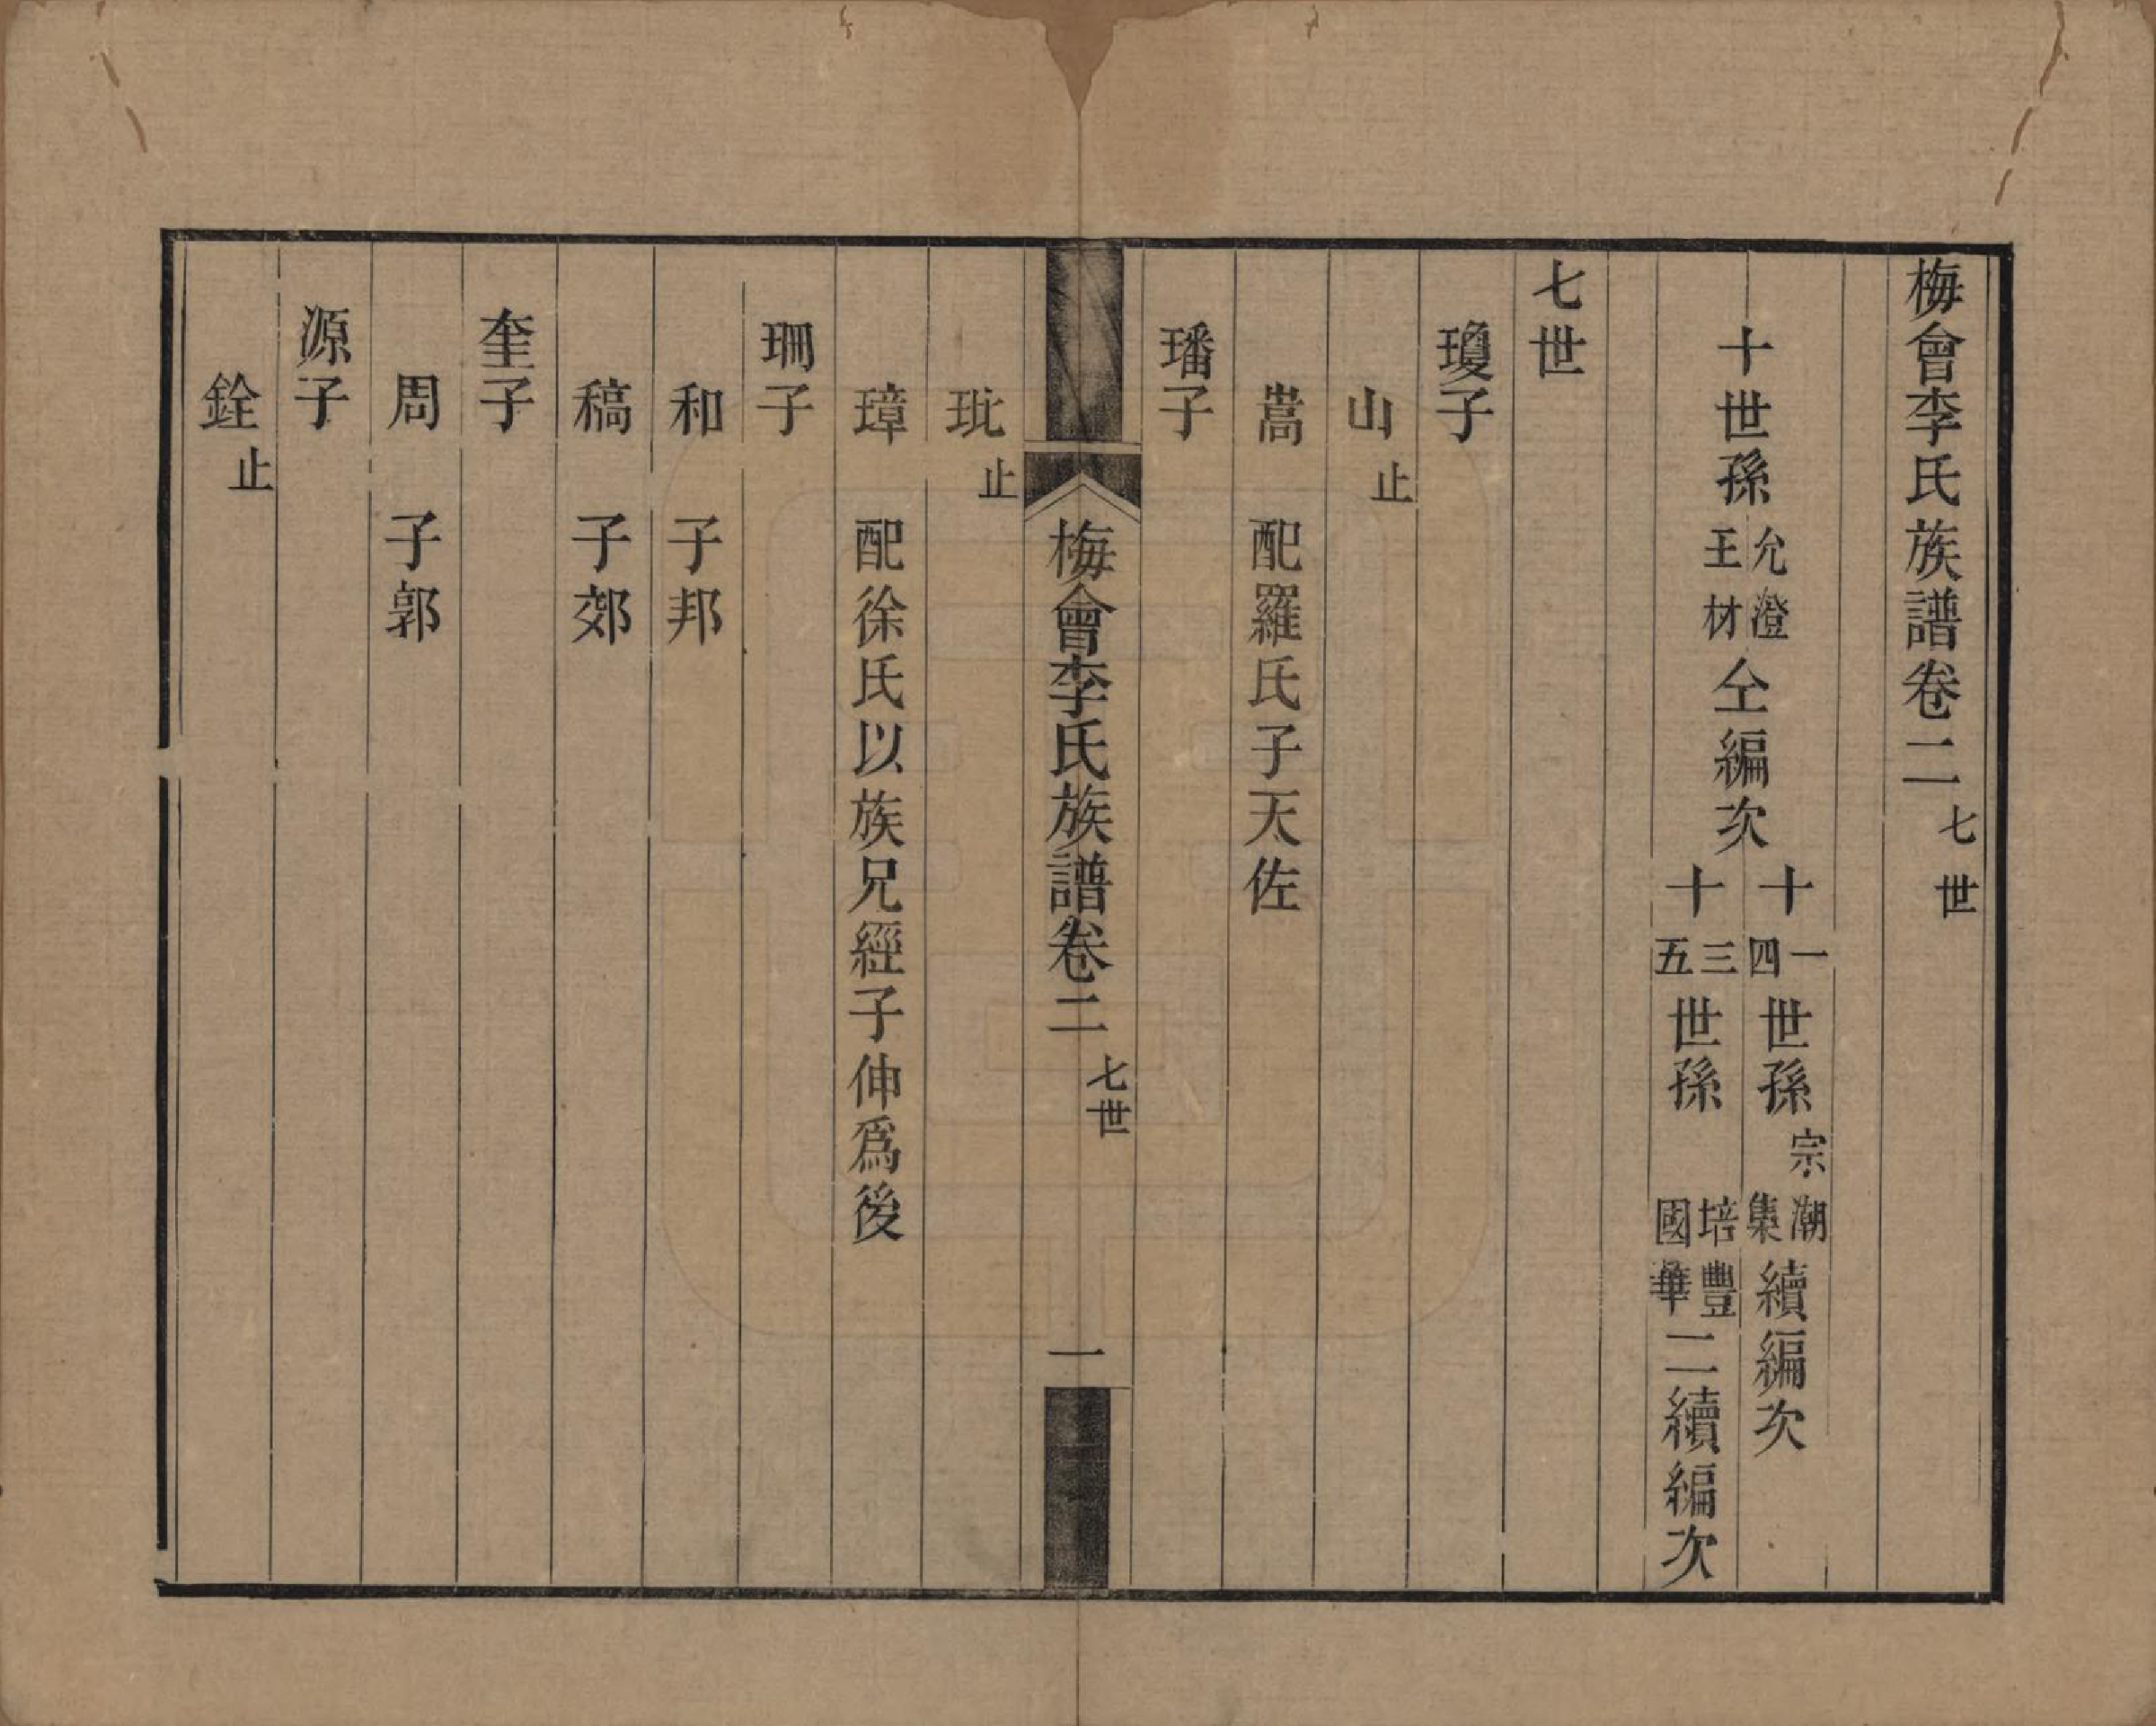 梅會李氏族譜卷二七世
十世孫允澄王材仝編次
十一四世孫宗潮集續編次
十三五世孫培豐國華二續編次
七世
瓊子
山止
嵩 配羅氏子天佐
璠子
梅會李氏族譜卷二七世 一
玭止
璋 配徐氏以族兄經子伸爲後
珊子
和 子邦
稿 子郊
奎子
周 子郭
源子
銓止